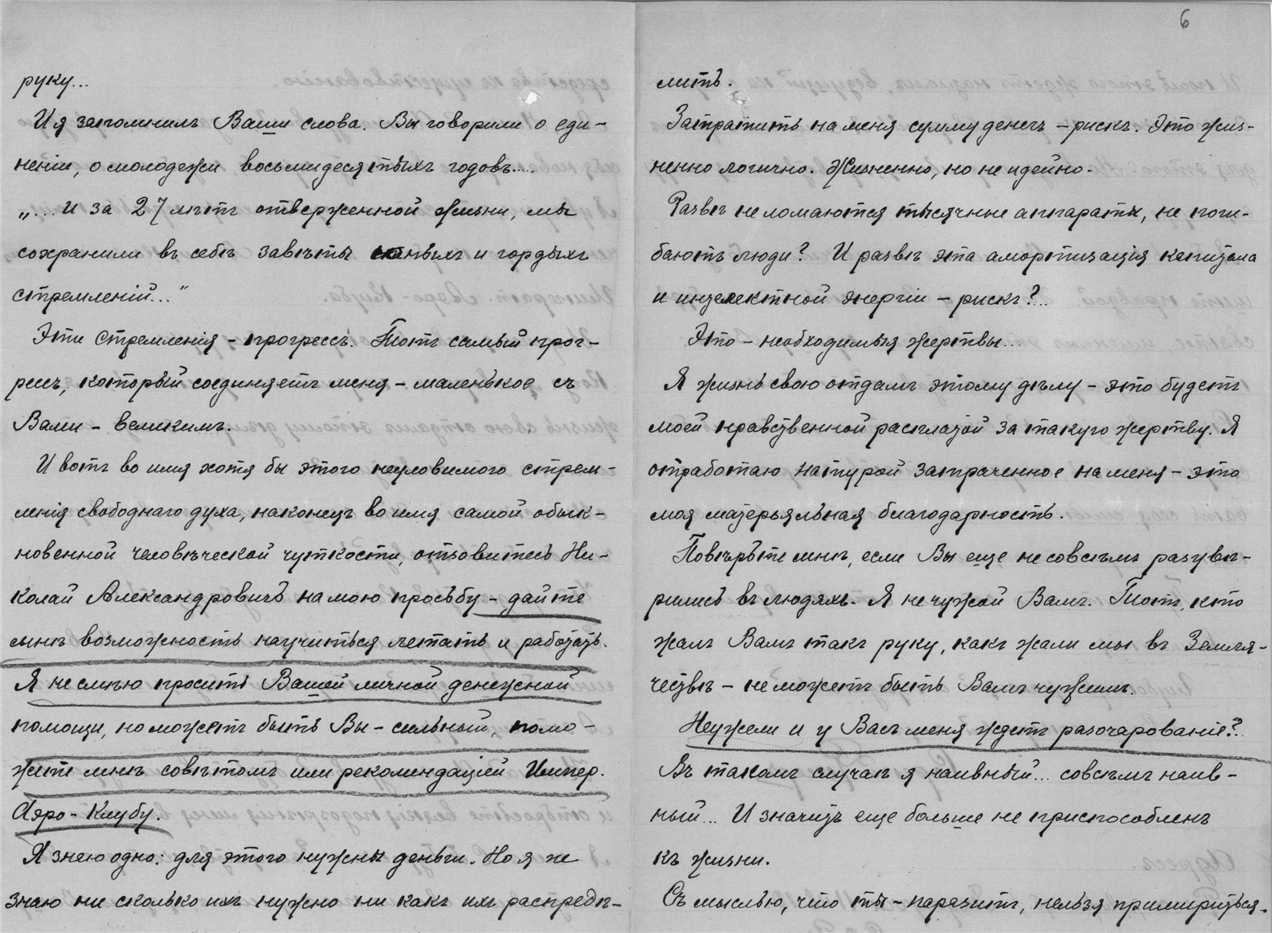 руку...
И я запомнилъ Ваши слова. Вы говорили о еди-
неніи, о молодежи восьмидесятыхъ годовъ...
„... и за 27 лѣтъ отверженной жизни, мы
сохранили въ себѣ завѣты юныхъ и гордыхъ
стремленій..."
Эти стремленія - прогрессъ. Тотъ самый прог-
рессъ, который соединяетъ меня - маленькое съ
Вами - великимъ.
И вотъ во имя хотя бы этого неуловимого стрем-
ленія свободнаго духа, наконецъ во имя самой обык-
новенной человѣческой чуткости, отзовитесь Ни-
колай Александровичъ на мою просьбу - дайте
мнѣ возможность научиться летать и работать.
Я не смѣю просить Вашей личной денежной
помощи, но можетъ быть Вы - сильный, помо-
жите мнѣ совѣтомъ или рекомендаціей Импер.
Аэро-Клубу.
Я знаю одно: для этого нужны деньги. Но я не
знаю ни сколько ихъ нужно ни какъ их распредѣ-
6
лить.
Затратить на меня сумму денегъ - рискъ. Это жиз-
ненно логично. Жизненно, но не идейно.
Развѣ не ломаются тысячные аппараты, не поги-
баютъ люди? И развѣ эта амортизація капитала
и интелектной энергіи - рискъ?..
Это - необходимыя жертвы...
Я жизнь свою отдамъ этому дѣлу - это будетъ
моей нравственной расплатой за такую жертву. Я
отработаю натурой затраченное на меня - это
моя матерьяльная благодарность.
Повѣрьте мнѣ, если Вы еще не совсѣмъ разувѣ-
рились въ людяхъ. Я не чужой Вамъ. Тотъ, кто
жалъ Вамъ такъ руку, какъ жали мы въ Земля-
чествѣ - не можетъ быть Вамъ чужимъ.
Неужели и у Васъ меня ждетъ разочарованіе?..
Въ такомъ случаѣ я наивный... совсѣмъ наив-
ный... И значитъ еще больше не приспособленъ
къ жизни.
Съ мыслью, что ты - паразитъ, нельзя примириться.